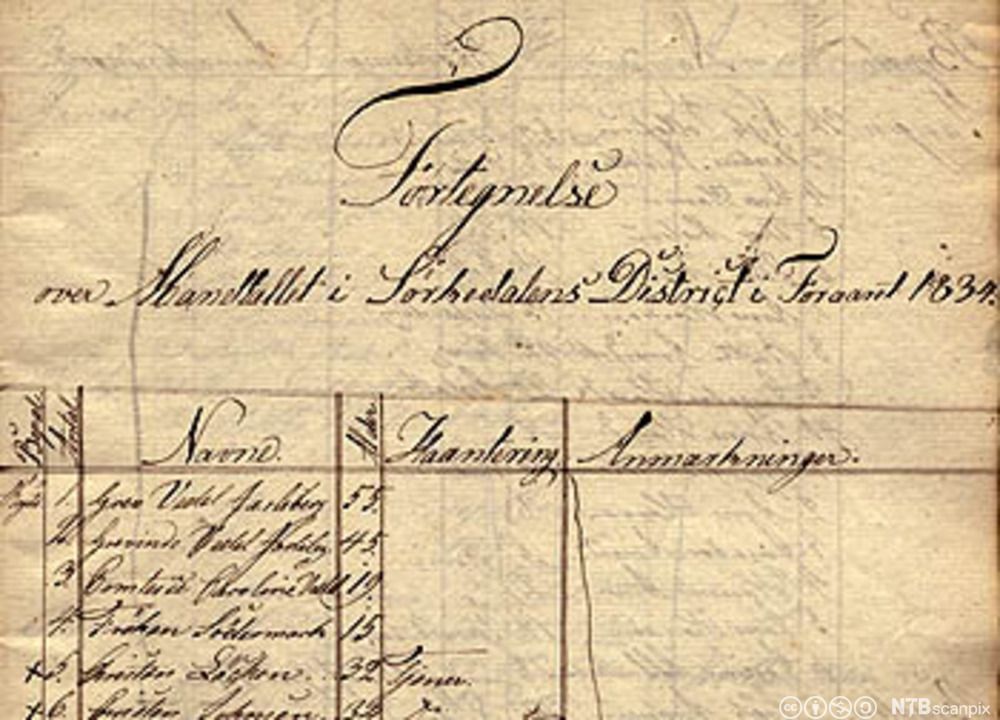 Fortegnelse
over Mandtallet i Sørkedalens District i Foraaret 1834.
Bygsel Antal Navne. Alder Haantering Anmærkninger.
1. Grev Vedel Jarlsberg 55.
2. Grevinde Vedel Jarlsberg 45.
3. Comtesse Caroline Vedel 19.
4. Frøken Södermark 15.
+ 5. 32 Tjener.
+ 6.
NTB scanpix